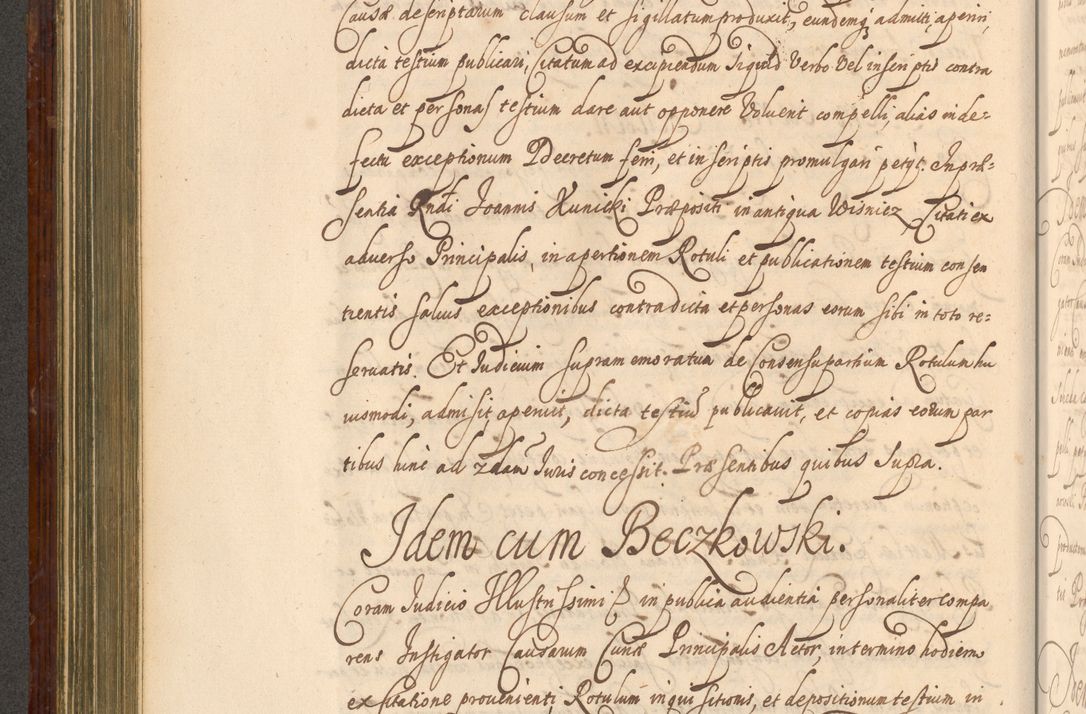 Causæ descriptarum clausum et sigillatum produxit, eundemq; admitti, aperiri,
dicta testium publicari, Citatum ad excipiendum siquid Verbo Vel in scriptis contra
dicta et personas testium dare aut opponere Voluerit compelli, alias in de-
fectu exceptionum Decretum ferri, et in scriptis promulgari petijt. In præ-
sentia Rndi Joannis Kunicki Præpositi in antiqua Wisnicz Citati ex
adverso Principalis, in apertionem Rotuli et publicationem testium consen
tientis salvis exceptionibus contra dicta et personas eorum sibi in toto re-
servatis. Et Judicium supramemoratum de Consensu partium Rotulum hu
iusmodi, admisit, aperuit, dicta testiu publicavit, et copias eorum par
tibus hinc ad 2dam Juris concessit. Præsentibus quibus Supra.
Idem cum Beczkowski.
Coram Judicio Illustrissimi & in publica audientia personaliter compa
rens Instigator Causarum Curiæ Principalis Actor, in termino hodierno
ex Citatione provenienti, Rotulum inquisitionis, et depositionum testium in